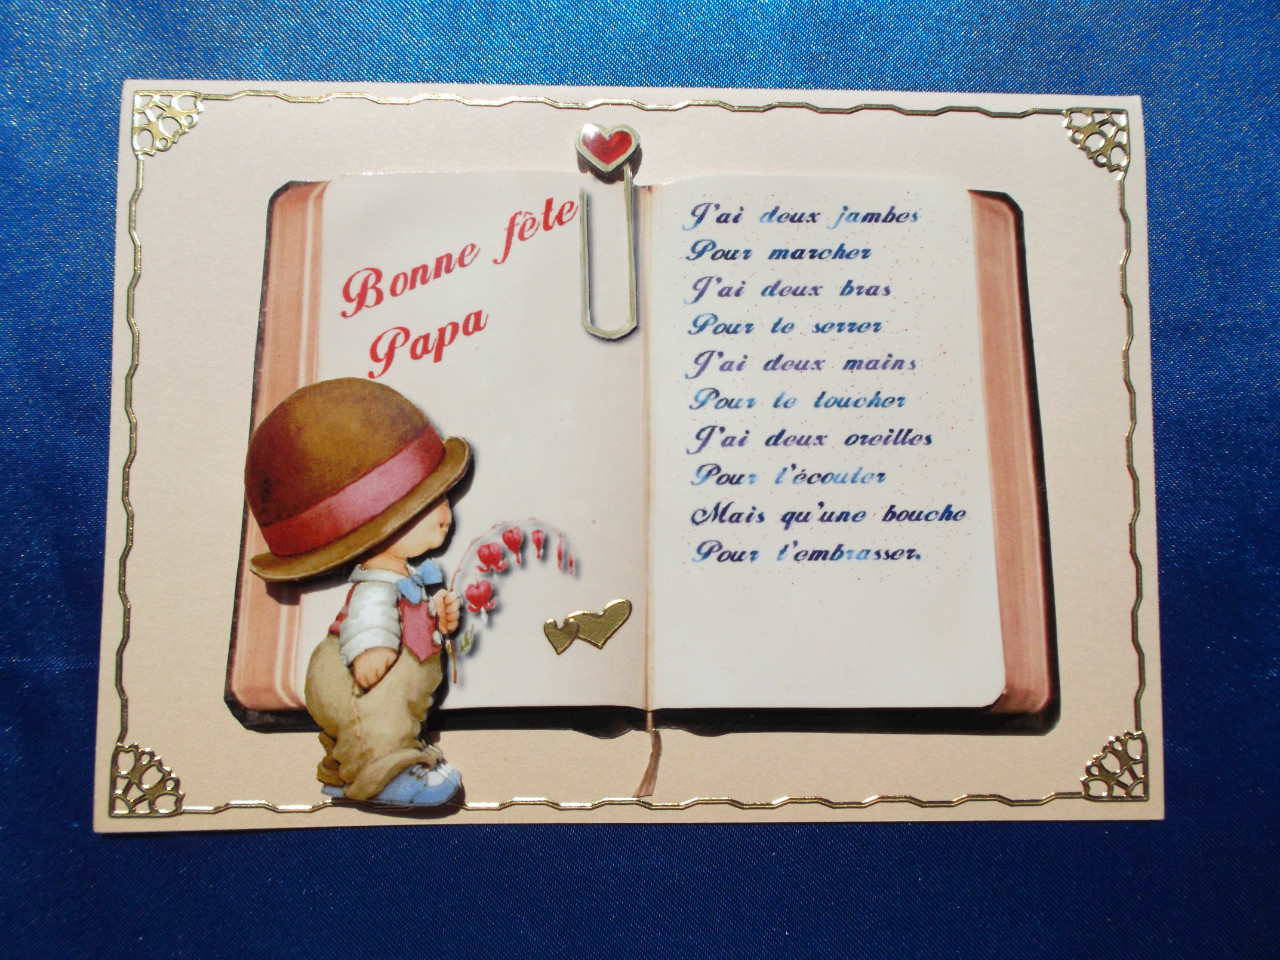 Bonne fête
Papa
J'ai deux jambes
Pour marcher
J'ai deux bras
Pour te serrer
J'ai deux mains
Pour te toucher
J'ai deux oreilles
Pour t'écouter
Mais qu'une bouche
Pour t'embrasser.